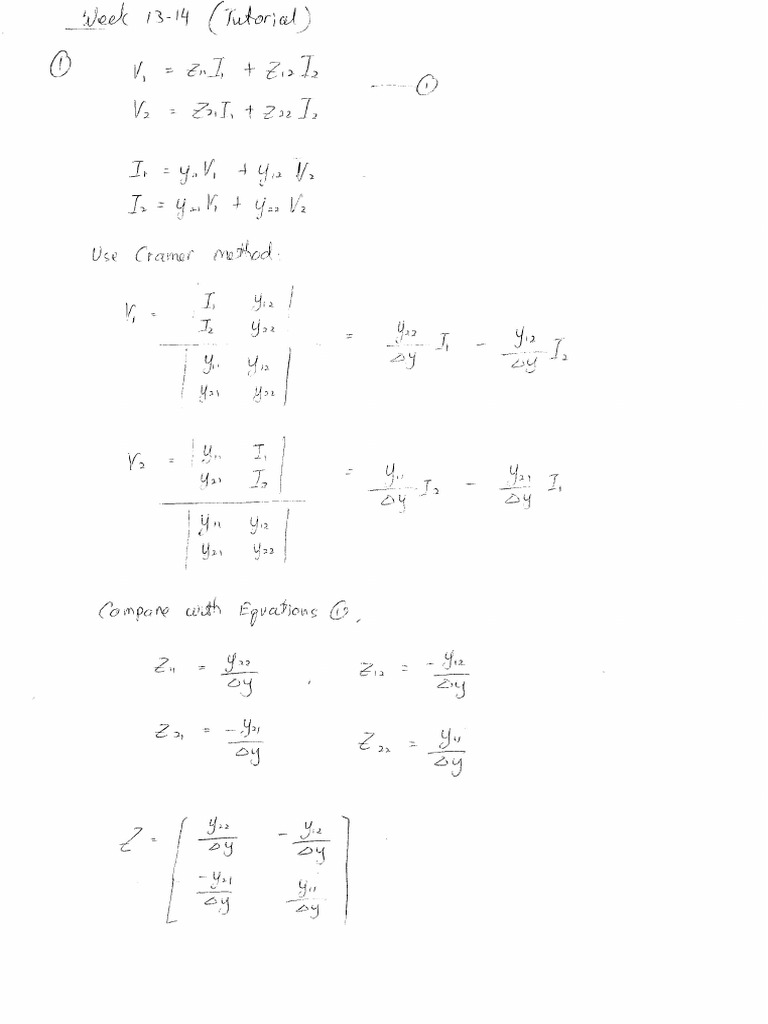 Week 13-14 (Tutorial)
① V₁ = Z₁₁I₁ + Z₁₂I₂
------ ①
V₂ = Z₂₁I₁ + Z₂₂I₂
I₁ = y₁₁V₁ + y₁₂V₂
I₂ = y₂₁V₁ + y₂₂V₂
Use Cramer method.
V₁ = | I₁ y₁₂ ; I₂ y₂₂ | / | y₁₁ y₁₂ ; y₂₁ y₂₂ | = y₂₂/Δy I₁ - y₁₂/Δy I₂
V₂ = | y₁₁ I₁ ; y₂₁ I₂ | / | y₁₁ y₁₂ ; y₂₁ y₂₂ | = y₁₁/Δy I₂ - y₂₁/Δy I₁
Compare with Equations ①,
Z₁₁ = y₂₂/Δy , Z₁₂ = -y₁₂/Δy
Z₂₁ = -y₂₁/Δy Z₂₂ = y₁₁/Δy
Z = [ y₂₂/Δy -y₁₂/Δy ; -y₂₁/Δy y₁₁/Δy ]